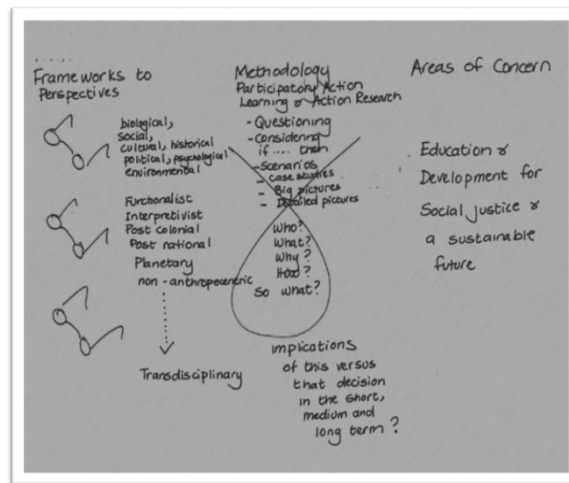 Frameworks to
Perspectives
biological,
social,
cultural, historical
political, psychological
environmental
Functionalist
Interpretivist
Post colonial
Post national
Planetary
non-anthropocentric
Transdisciplinary
Methodology
Participatory Action
Learning & Action Research
- Questioning
- Considering
if .... then
- Scenarios
- case studies
- Big pictures
- Detailed pictures
Who?
What?
Why?
How?
So what?
implications
of this versus
that decision
in the short,
medium and
long term?
Areas of Concern
Education &
Development for
Social justice &
a sustainable
future